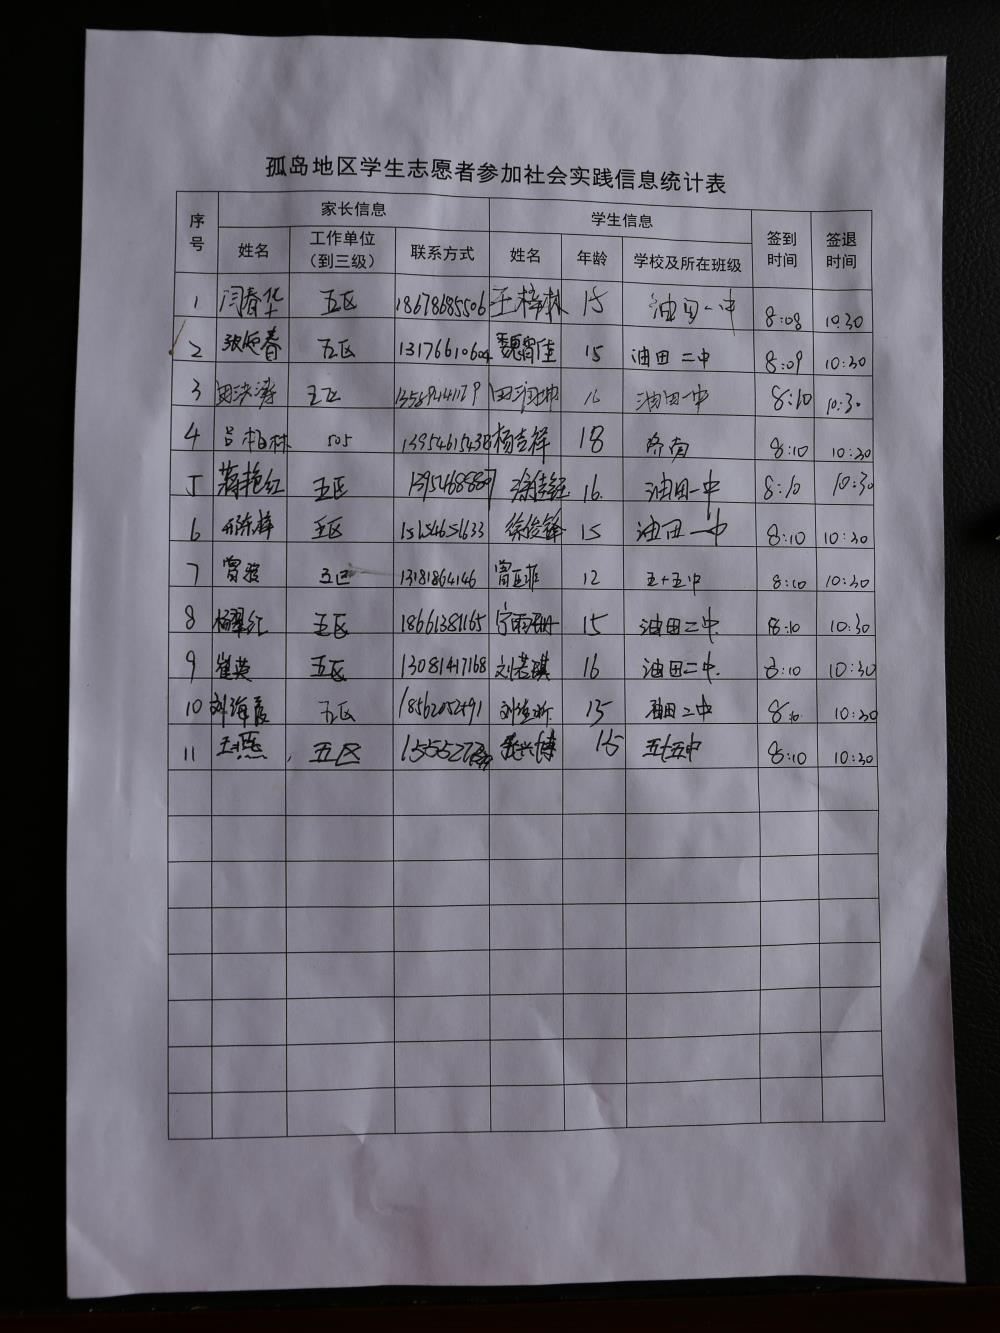 孤岛地区学生志愿者参加社会实践信息统计表
序号 家长信息 学生信息 签到时间 签退时间
姓名 工作单位（到三级） 联系方式 姓名 年龄 学校及所在班级
1 闫春华 五区 18678685506 王梓林 15 油田一中 8:08 10:30
2 五区 13176610604 15 油田二中 8:09 10:30
3 五区 16 油田一中 8:10 10:30
4 吕柏林 505 杨吉祥 18 济南 8:10 10:30
5 蒋艳红 五区 16 油田一中 8:10 10:30
6 五区 徐俊锋 15 油田一中 8:10 10:30
7 五区 13181864146 12 五十五中 8:10 10:30
8 杨翠红 五区 18661381165 宁雨珊 15 油田二中 8:10 10:30
9 崔英 五区 13081417168 刘若琪 16 油田二中 8:10 10:30
10 刘海霞 五区 18562052591 15 油田二中 8:10 10:30
11 王燕 五区 15 五十五中 8:10 10:30